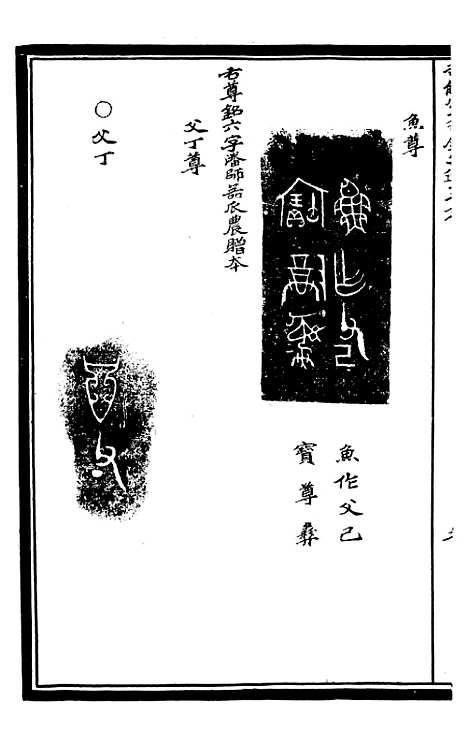 魚尊
魚作父己
寶尊彝
右尊銘六字潘師
農贈本
父丁尊
〇父丁